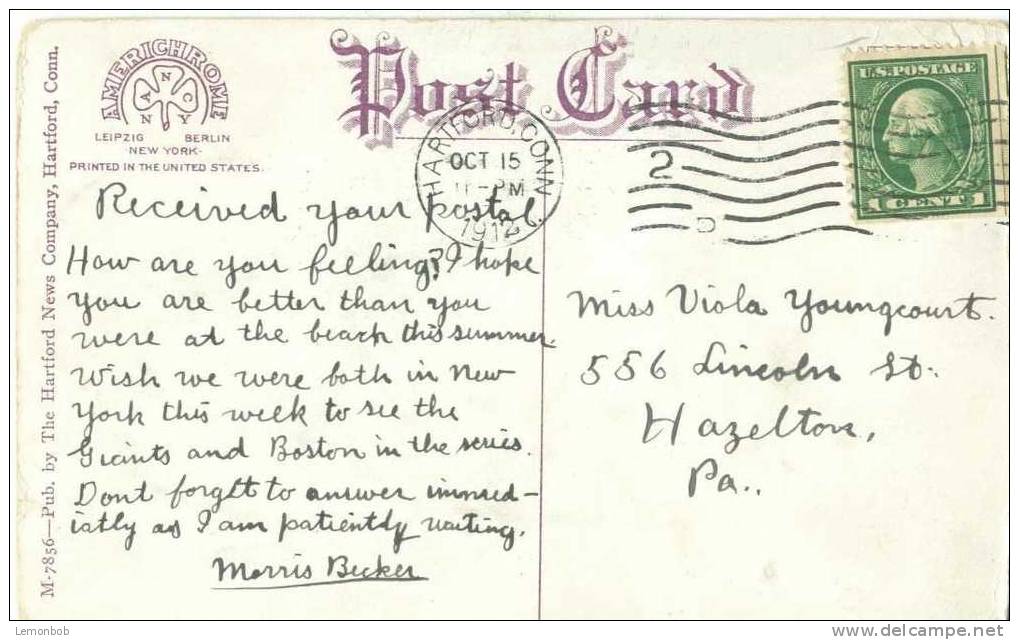 AMERICHROME
A N N C N Y
LEIPZIG BERLIN
NEW YORK
PRINTED IN THE UNITED STATES.
Post Card
HARTFORD, CONN.
OCT 15
11-PM
1912
2
5
U.S. POSTAGE
1 CENT 1
M-7856—Pub. by The Hartford News Company, Hartford, Conn.
Received your postal.
How are you feeling? I hope
you are better than you
were at the beach this summer.
Wish we were both in New
York this week to see the
Giants and Boston in the series.
Dont forget to answer immed-
iatly as I am patiently waiting.
Morris Becker
Miss Viola Youngcourt.
556 Lincoln St.
Hazelton,
Pa..
Lemonbob
www.delcampe.net